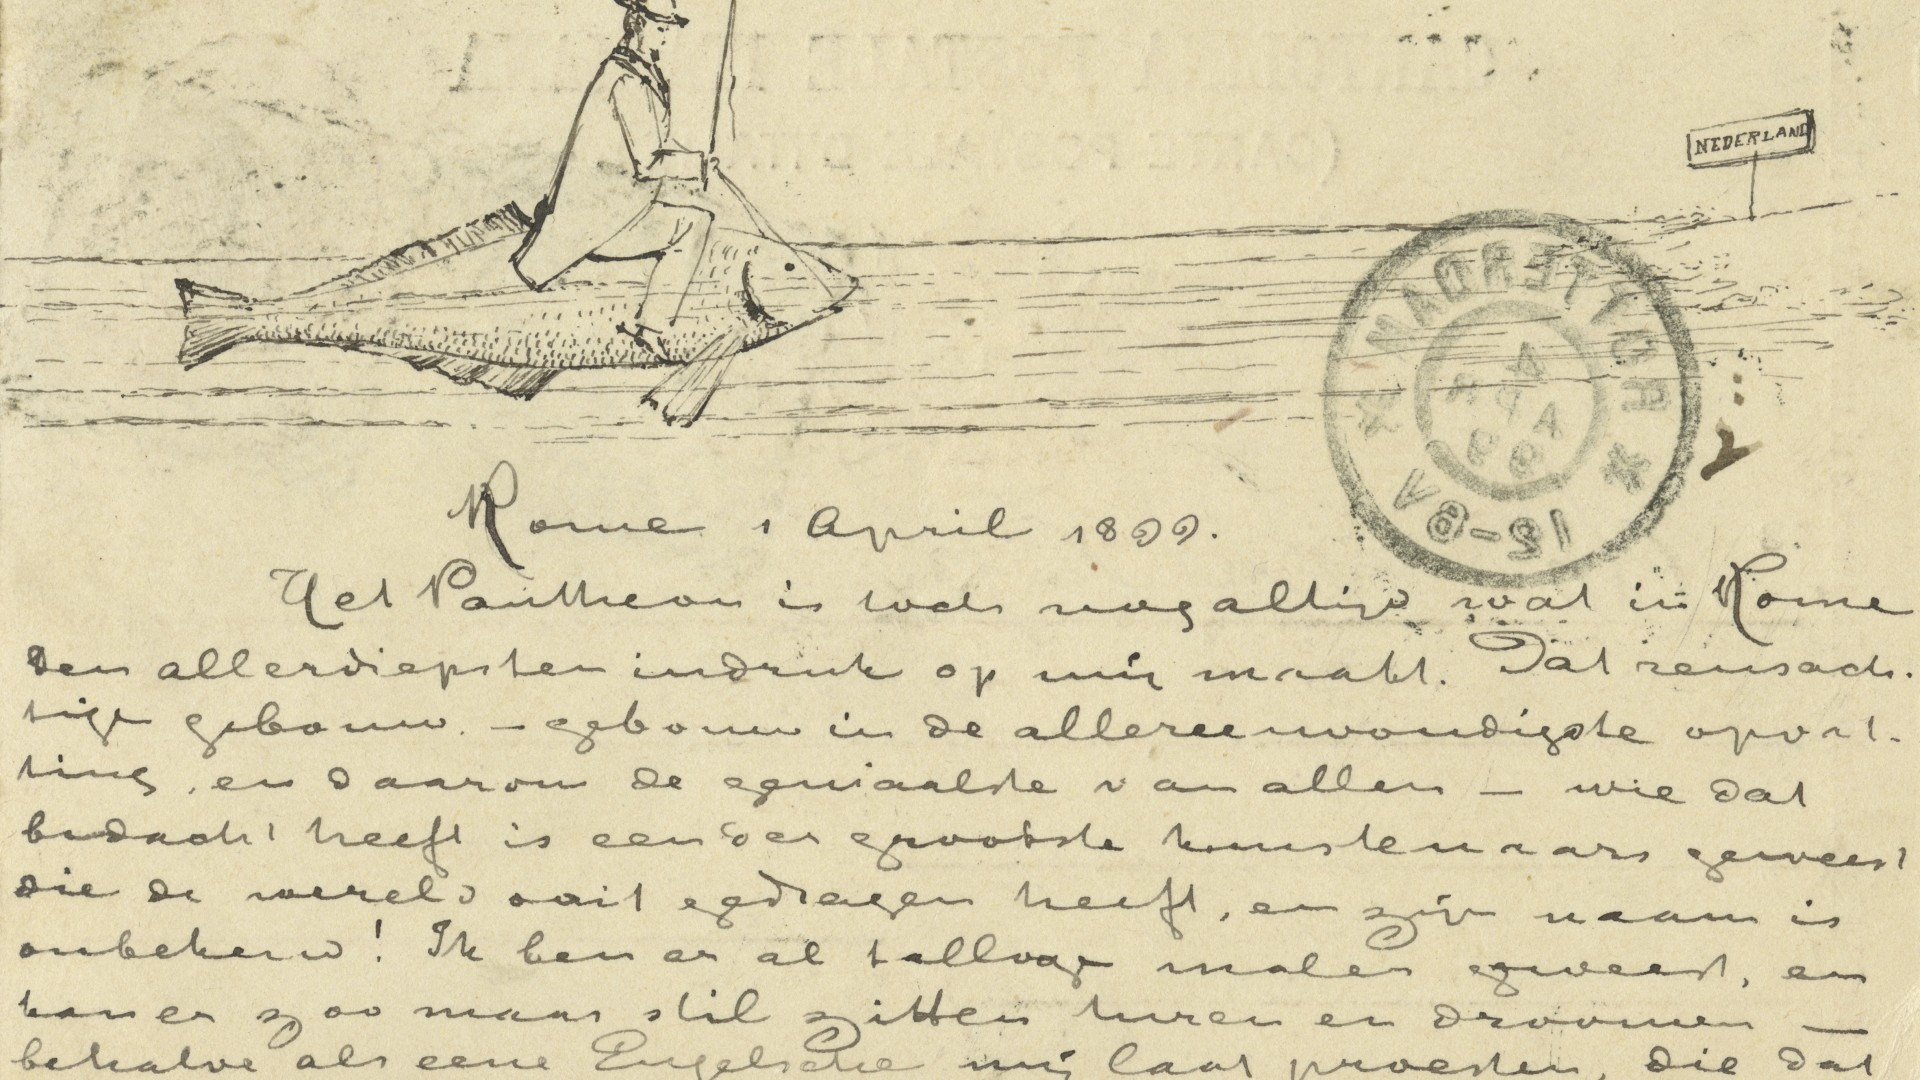 NEDERLAND
AMSTERDAM
4
APR
99
12-6V
Rome 1 April 1899.
Het Pantheon is toch nog altijd wat in Rome
den allerdiepsten indruk op mij maakt. Dat reusach-
tige gebouw – gebouw in de allereenvoudigste opvat-
ting, en daarom de geniaalste van allen – wie dat
bedacht heeft is een der grootste kunstenaars geweest
die de wereld ooit gedragen heeft, en zijn naam is
onbekend! Ik ben er al tallooze malen geweest, en
kan er zoo maar stil zitten turen en droomen —
behalve als eene Engelsche mij laat proesten, die dat